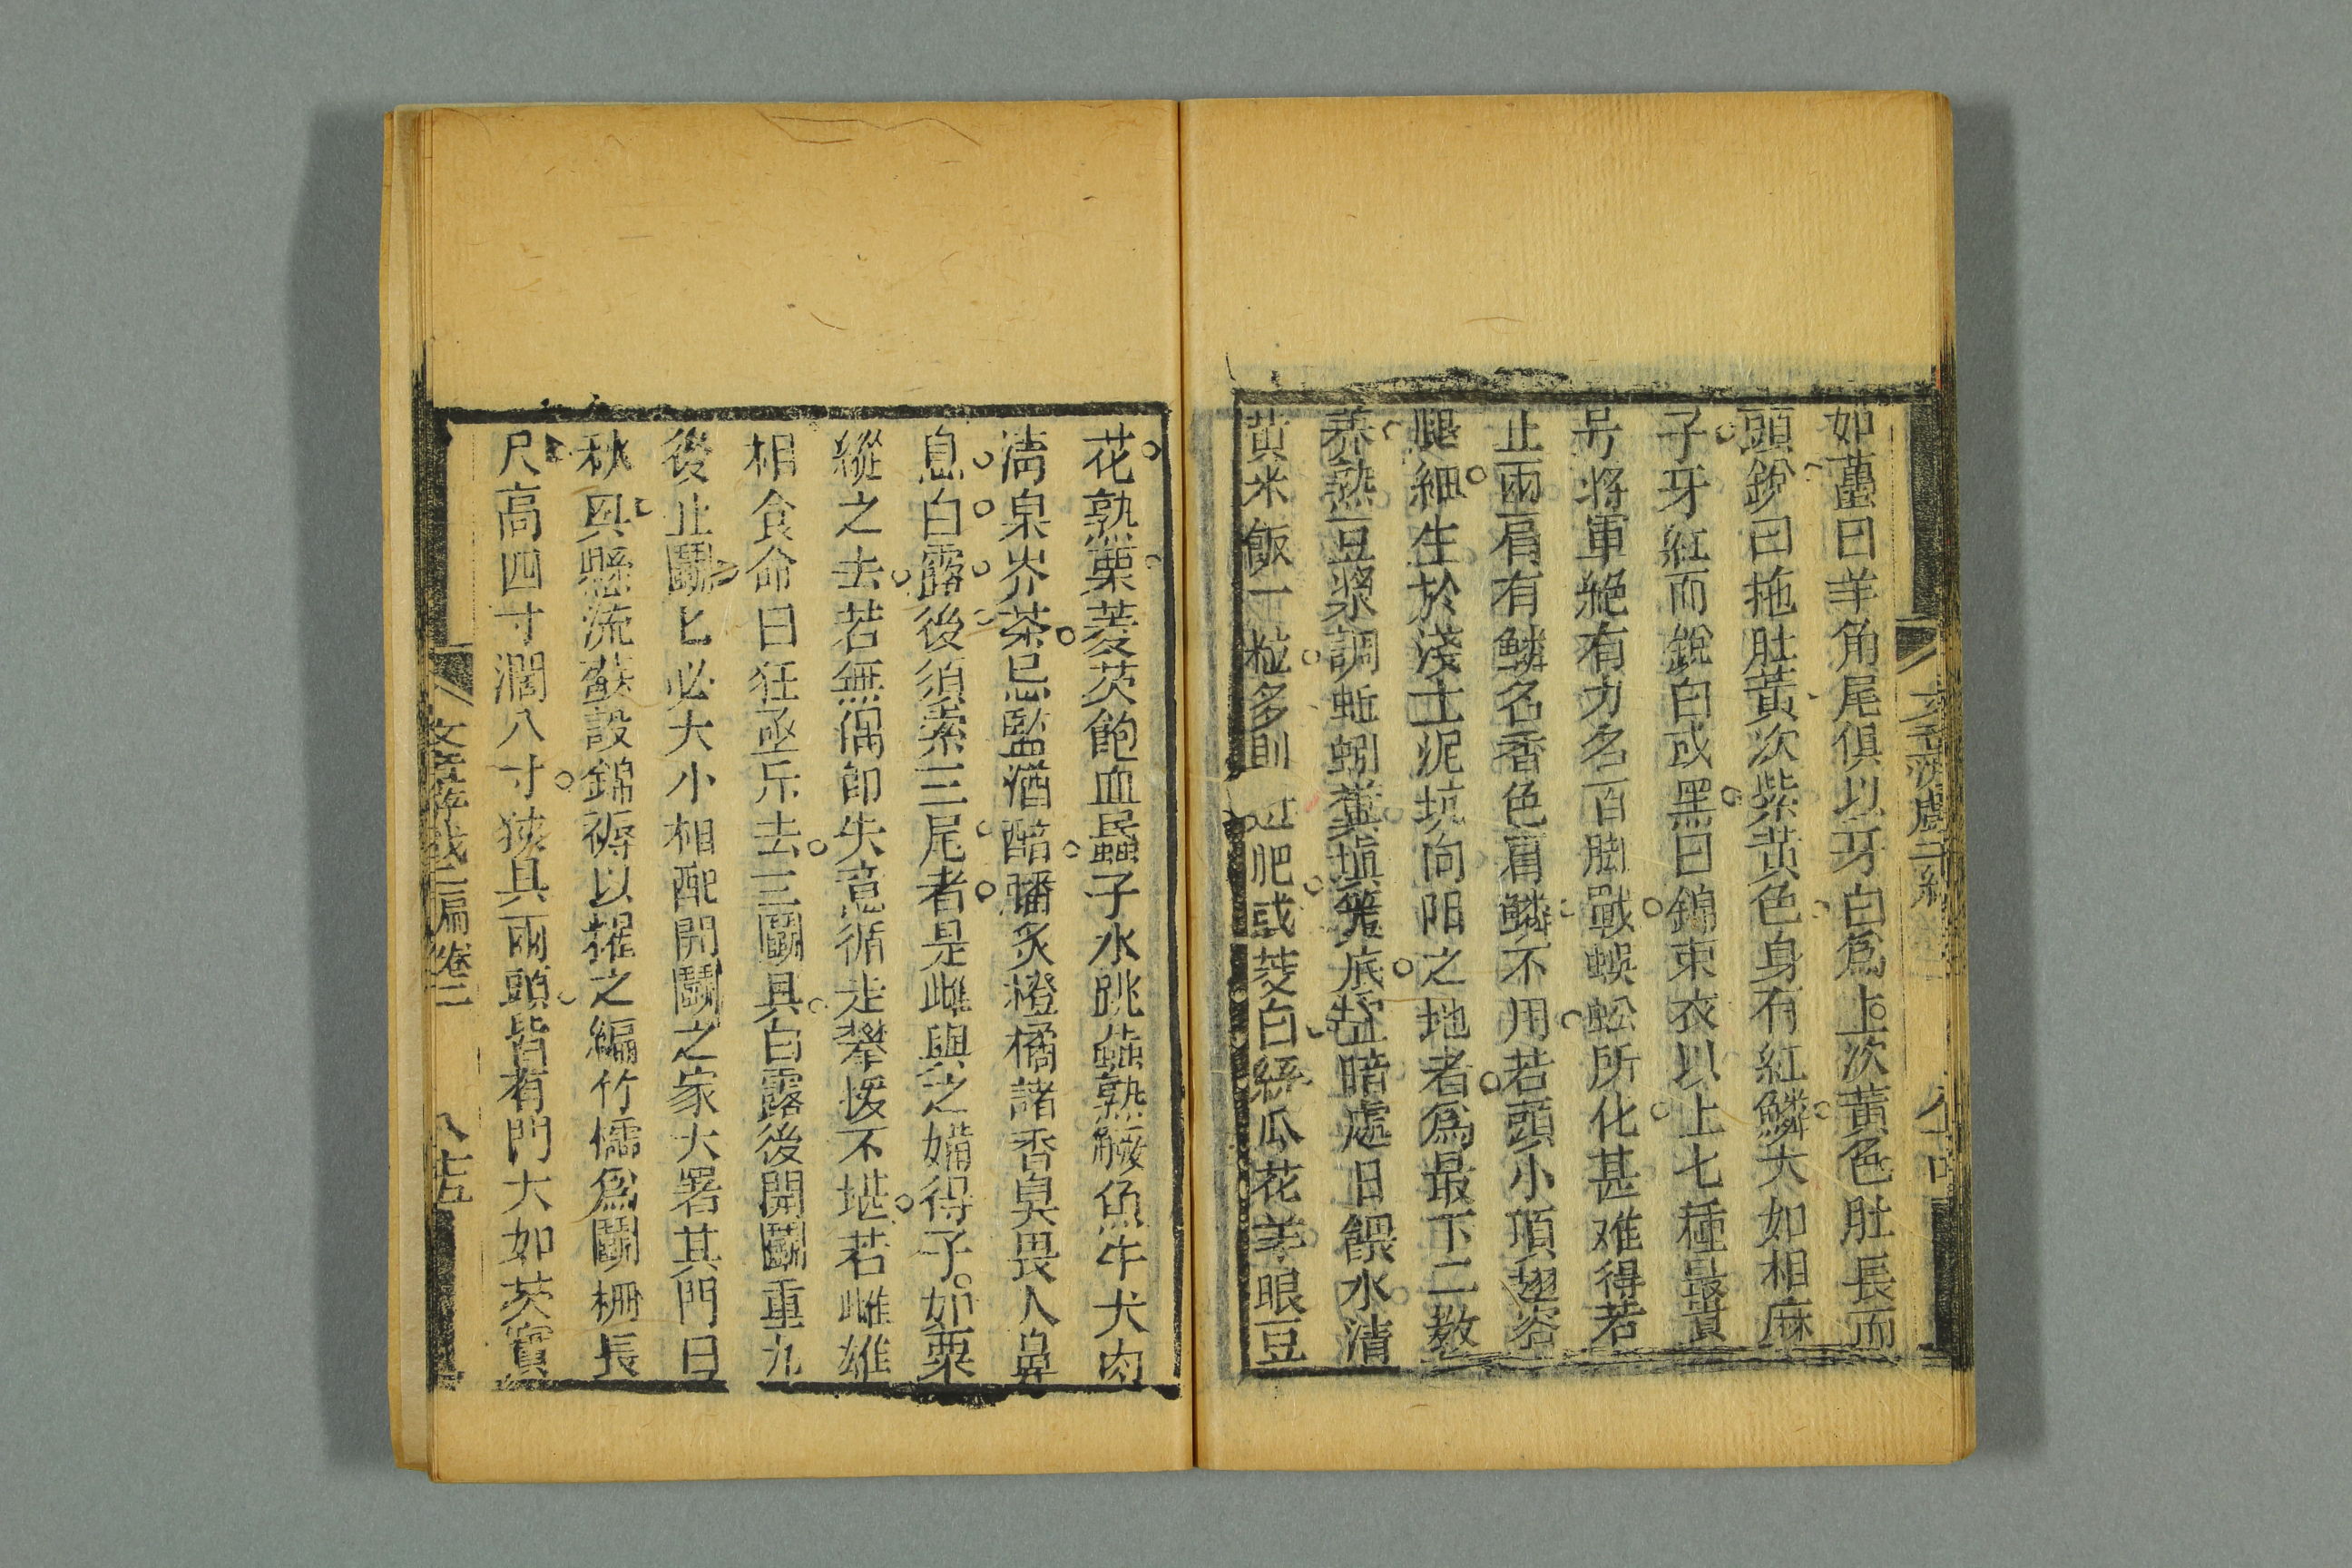 如蠆曰羊角尾俱以牙白爲上次黃色肚長而
頭銳曰拖肚黃次紫黃色身有紅鱗大如相麻
子牙紅而銳白或黑曰錦束衣以上七種最貴
号將軍絕有力名百脚戰蜈蚣所化甚难得若
止兩肩有鱗名香色肩鱗不用若頭小項翅
腿細生於淺土泥坑向阳之地者爲最下二教
养熟豆漿調蚯蚓糞塡盆底盆暗處日餵水清
黃米飯一粒多則 肥或菱白絲瓜花羊眼豆
花熟栗菱芡飽血蝱子水跳蟲熟鱖魚牛犬肉
清泉岕茶忌監酒醋蟠炙橙橘諸香臭畏人鼻
息白露後須索三尾者是雌與之媾得子如粟
縱之去若無偶即失意循走攀援不堪若雌雄
相食命曰狂亟乐去三鬭具白露後開鬭重九
後止鬭匕必大小相配開鬭之家大署其門曰
秋興懸流蘇設錦褥以擢之編竹爲鬭柵長
尺高四寸濶八寸狹具兩頭皆有門大如芡實
文章游戲二編卷二
八十五